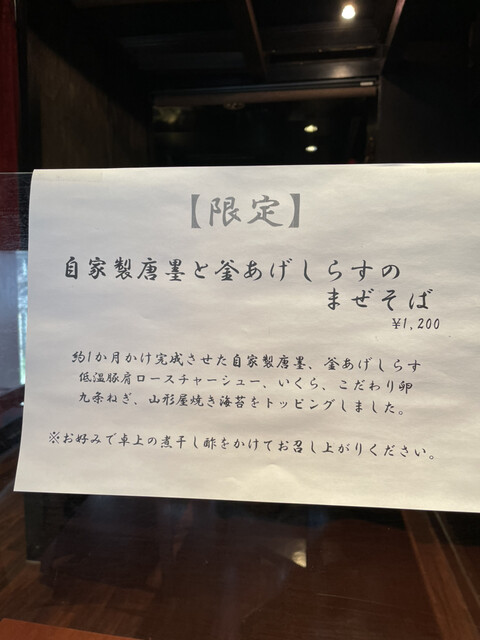 【限定】
自家製唐墨と釜あげしらすの
まぜそば
¥1,200
約1か月かけ完成させた自家製唐墨、釜あげしらす
低温豚肩ロースチャーシュー、いくら、こだわり卵
九条ねぎ、山形屋焼き海苔をトッピングしました。
※お好みで卓上の煮干し酢をかけてお召し上がりください。